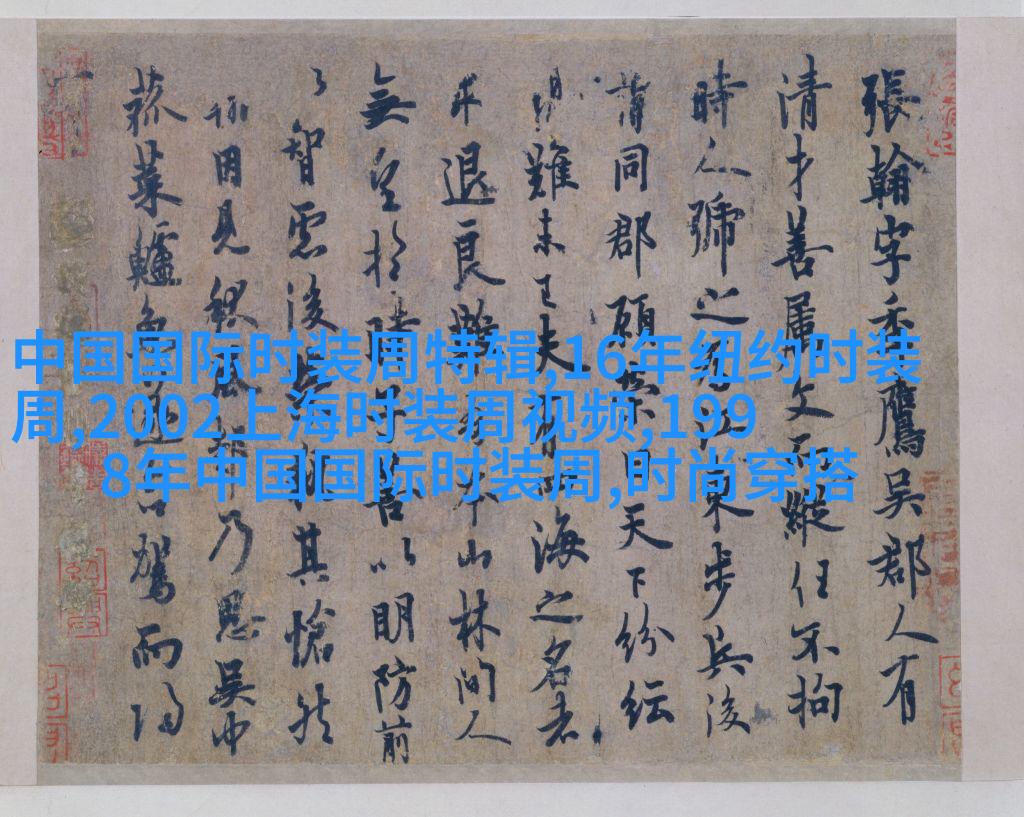 張翰字季鷹吳郡人有
清才善属文而縱任不拘
時人號之為江東步兵後
謂同郡顧榮曰天下紛紜
難未已夫有四海之名者
求退良難吾本山林間人
無望於時子善以明防前
以智慮後榮執其愴然
翰因見秋風起乃思吳中
菰菜鱸魚遂命駕而歸
中国国际时装周特辑,16年纽约时装
周,2002上海时装周视频,199
8年中国国际时装周,时尚穿搭